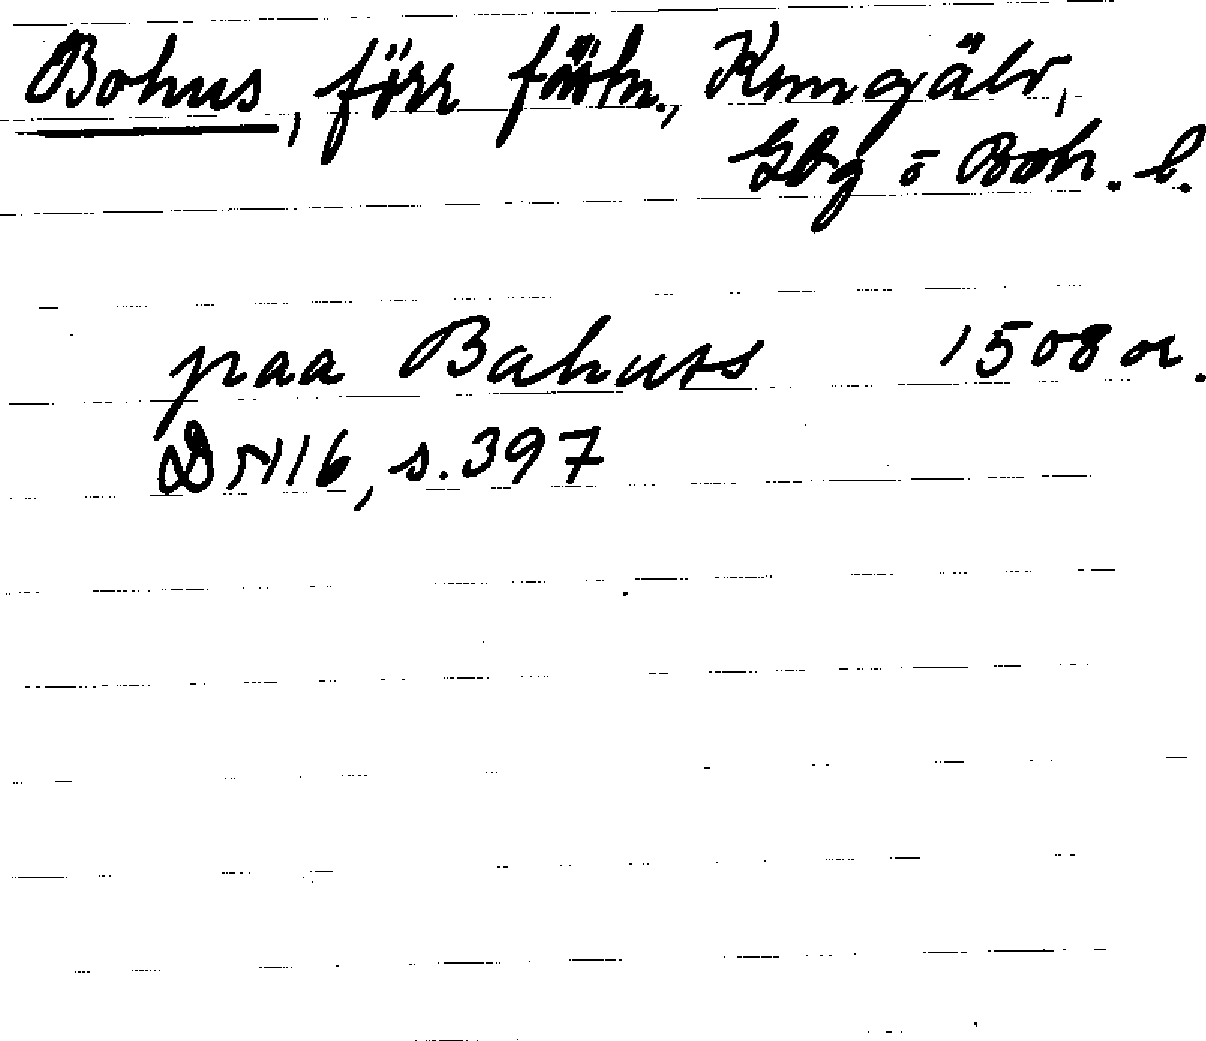 Bohus, förr fästn., Kungälv,
Gbg o Boh. l.
paa Bahuss 1508 or.
DN 16, s. 397